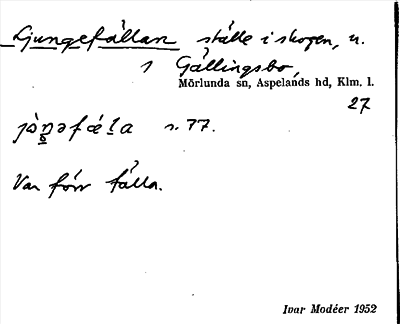 Ljungefällan ställe i skogen, n.
1 Gällingsbo,
Mörlunda sn, Aspelands hd, Klm. l.
27
s. 77.
Var förr fälla.
Ivar Modéer 1952